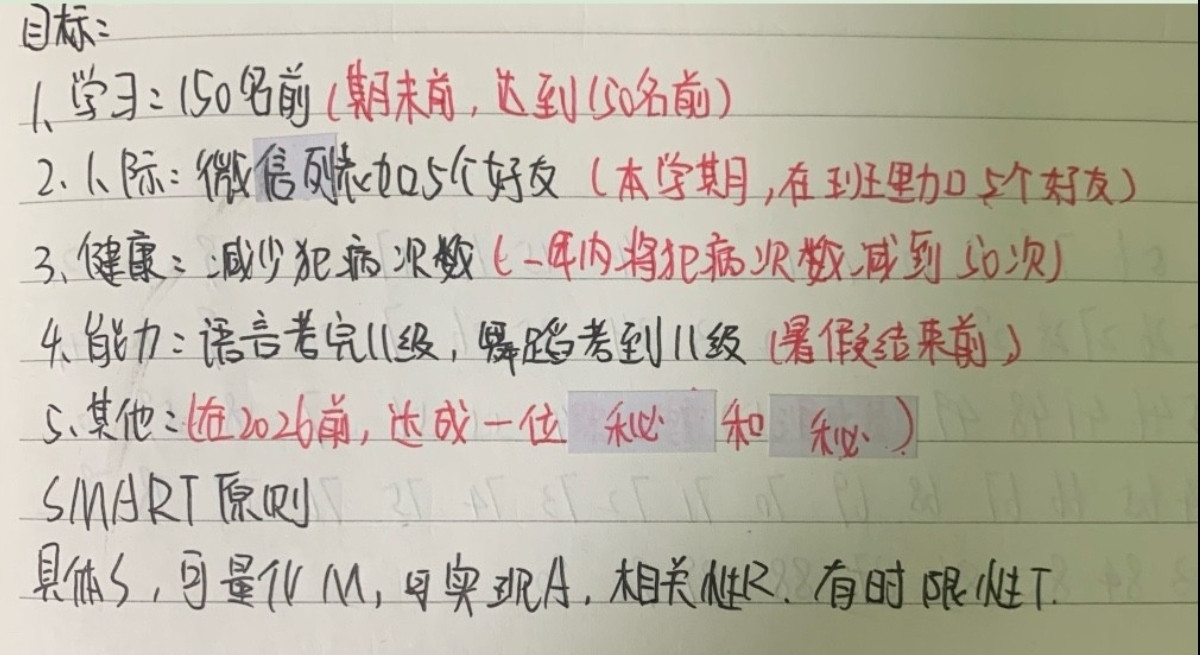 目标：
1、学习：150名前（期末前，达到150名前）
2、人际：微信列表加5个好友（本学期，在班里加5个好友）
3、健康：减少犯病次数（一年内将犯病次数减到50次）
4、能力：语言考完11级，舞蹈考到11级（暑假结束前）
5、其他：（在2026前，达成一位 秘 和 秘 ）
SMART原则
具体S，可量化M，可实现A，相关性R、有时限性T.